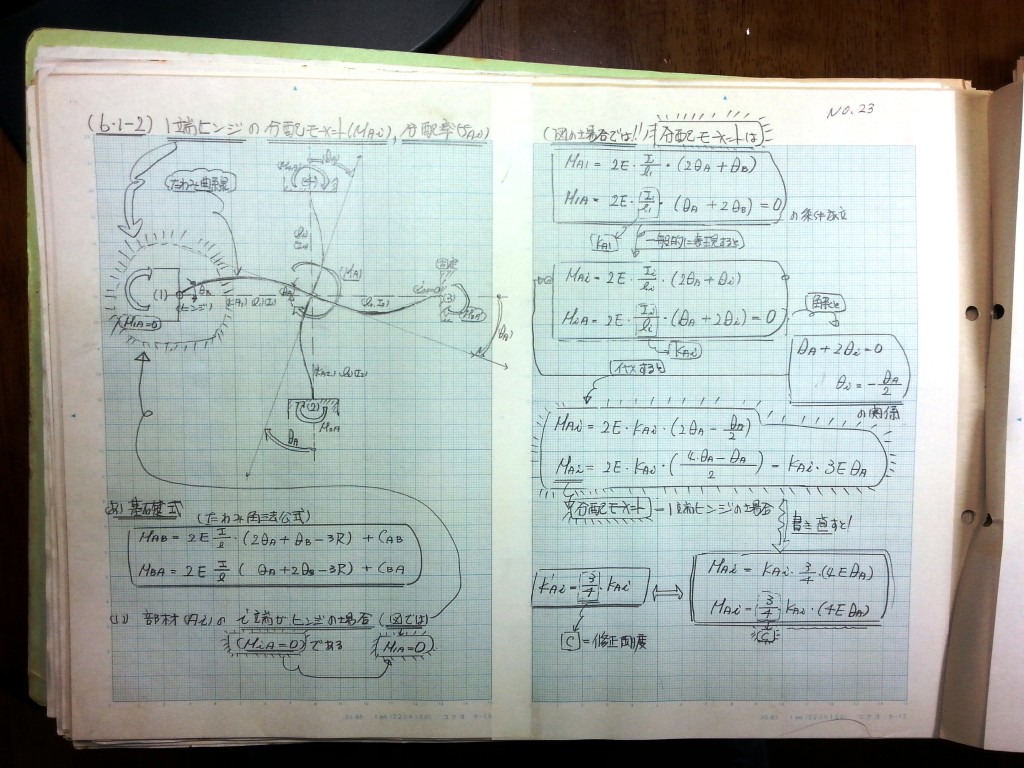 (6-1-2) 1端ヒンジの分配モーメント(MAi), 分配率(
たわみ曲線
(4)
(MA)
固定
(1)
(ヒンジ)
M1A=0
(3)
(2)
M2A
θA
基礎式
(たわみ角法公式)
MAB = 2E I/l・(2θA + θB - 3R) + CAB
MBA = 2E I/l・(θA + 2θB - 3R) + CBA
(1) 部材(Ai)のi端がヒンジの場合 (図では)
(MiA=0)である
(M1A=0)
NO.23
(図の場合では!!) 分配モーメントは
MA1 = 2E・I/l1・(2θA + θB)
M1A = 2E・I/l1・(θA + 2θB) = 0
の条件成立
KA1
一般的に表現すると
MAi = 2E・Ii/li・(2θA + θi)
MiA = 2E・Ii/li・(θA + 2θi) = 0
KAi
θA + 2θi = 0
θi = -θA/2
の関係
MAi = 2E・KAi・(2θA - θA/2)
MAi = 2E・KAi・(4・θA - θA/2) = KAi・3EθA
分配モーメント - 1端ヒンジの場合
書き直すと!
K'Ai = 3/4・KAi
MAi = KAi・3/4・(4EθA)
MAi = 3/4 KAi・(4EθA)
C
C = 修正剛度